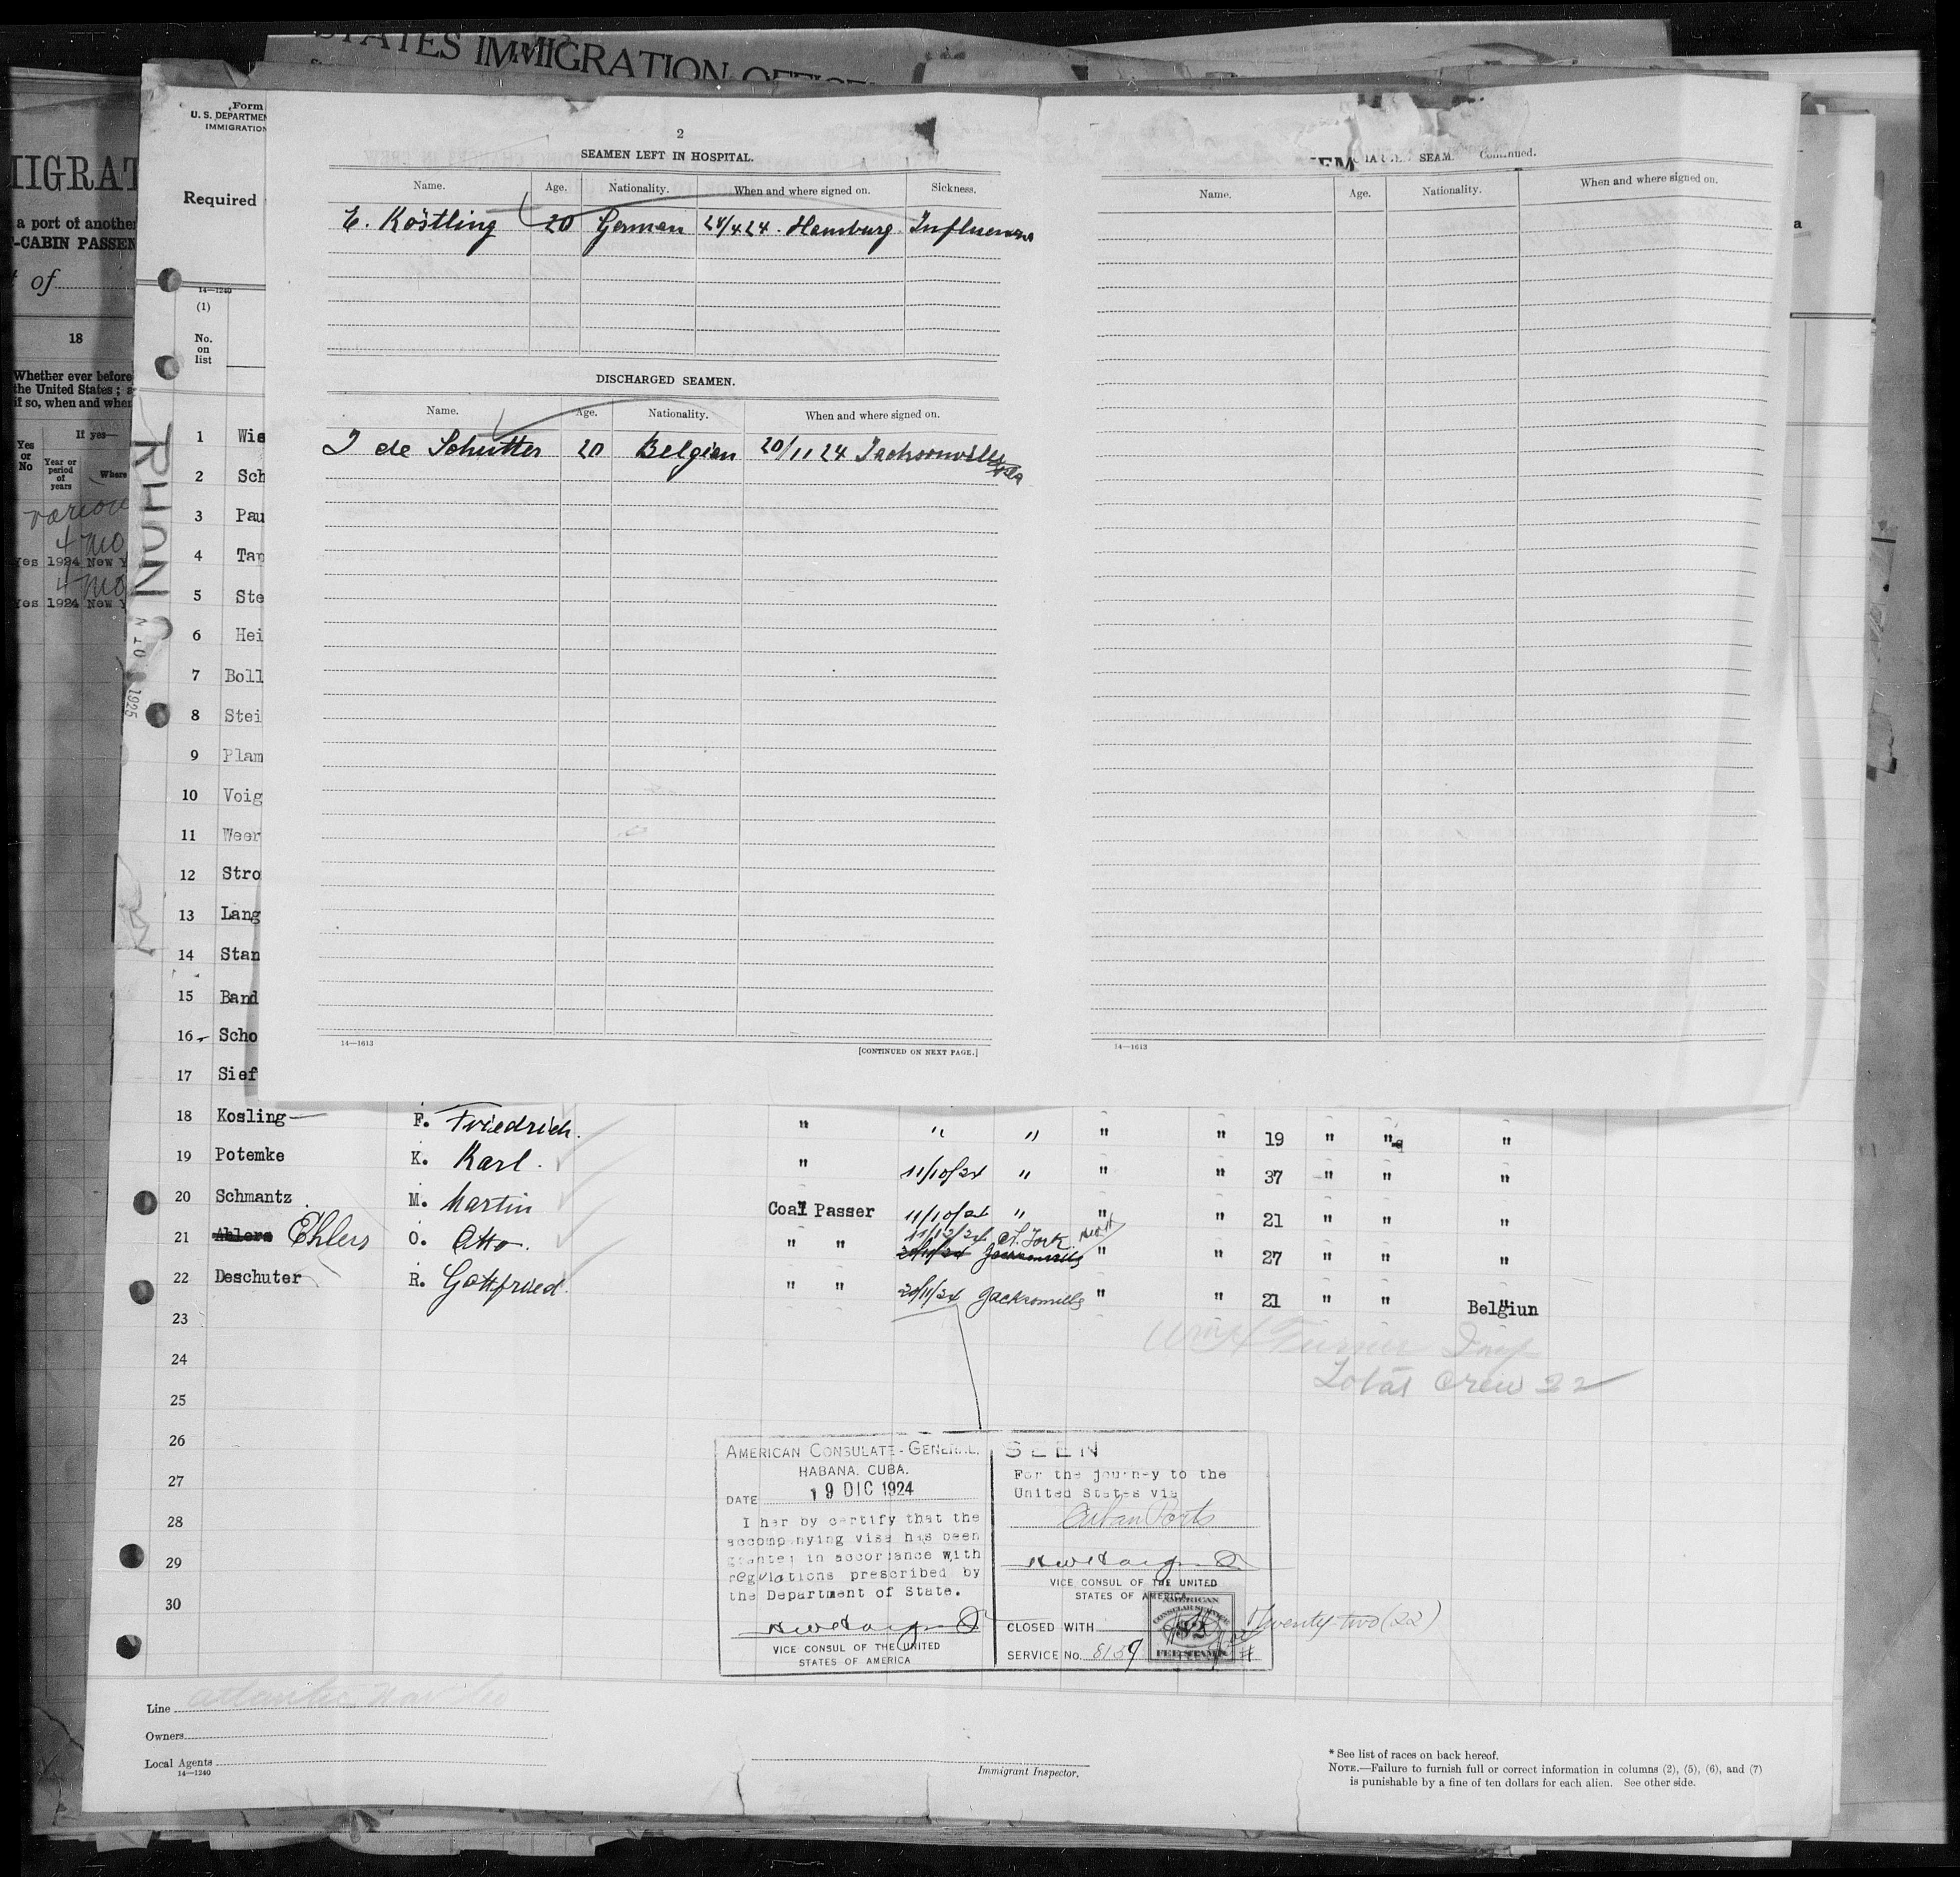 STATES IMMIGRATION
Form
U. S. DEPARTMEN
IMMIGRATION
Required
14—1240
(1)
No.
on
list
IIGRAT
a port of another
-CABIN PASSEN
of
18
Whether ever before
the United States; a
if so, when and wher
Yes
or
No
If yes—
Year or
period
of
years
Where
4 mo
Yes 1924 New Y
4 mo
Yes 1924 New Y
RHON
1925
2
SEAMEN LEFT IN HOSPITAL.
Name. Age. Nationality. When and where signed on. Sickness.
E. Köstling 20 German 24/4 24. Hamburg. Influenza
DISCHARGED SEAMEN.
Name. Age. Nationality. When and where signed on.
J de Schutter 20 Belgian 20/11 24 Jacksonville
14—1613
[CONTINUED ON NEXT PAGE.]
SEAM. Continued.
Name. Age. Nationality. When and where signed on.
14—1613
a
1 Wie
2 Sch
3 Pau
4 Tan
5 Ste
6 Hei
7 Boll
8 Stei
9 Plam
10 Voig
11 Weer
12 Stro
13 Lang
14 Stan
15 Band
16 Scho
17 Sief
18 Kosling F. Friedrich. " " " " " 19 " " "
19 Potemke K. Karl. " 11/10/24 " " " 37 " " "
20 Schmantz M. Martin Coal Passer 11/10/24 " " " 21 " " "
21 Ahlers Ehlers O. Otto. " " 11/12/24 N. York 20/11/24 Jacksonville " " 27 " " "
22 Deschuter R. Gottfried. " " 20/11/24 Jacksonville " " 21 " " Belgiun
23
24
25
26
27
28
29
30
Wm H Turner Insp
Total Crew 22
AMERICAN CONSULATE-GENERAL,
HABANA, CUBA.
DATE 19 DIC 1924
I her by certify that the
accompanying visa has been
granted in accordance with
regulations prescribed by
the Department of State.
VICE CONSUL OF THE UNITED
STATES OF AMERICA
SEEN
For the journey to the
United States via
Cuban Ports
VICE CONSUL OF THE UNITED
STATES OF AMERICA
CLOSED WITH Twenty-two (22)
SERVICE No. 8159
AMERICAN
CONSULAR SERVICE
$2
FEE STAMP
Line
Owners
Local Agents
14—1240
Immigrant Inspector.
* See list of races on back hereof.
NOTE.—Failure to furnish full or correct information in columns (2), (5), (6), and (7)
is punishable by a fine of ten dollars for each alien. See other side.